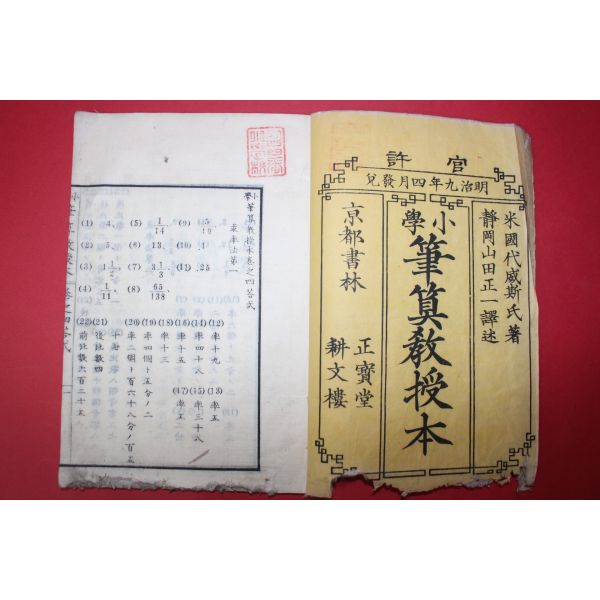 官許
明治九年四月發兌
米國代威斯氏著
靜岡山田正一譯述
小學
筆算教授本
京都書林
正寶堂
耕文樓
小學筆算教授本卷之四答式
求率法第一
(1) 4、
(2) 5、
(3) 1 1/2、
(4) 1/11、
(5) 1/14
(6) 13、
(7) 3 1/3、
(8) 65/138、
(10) .4、
(11) .25
(12) 率十九
(13) 率五
(14) 率四十八
(15) 率三十八
(16) 率四
(17) 率五
(18) 率十三
(19) 率四個十五分ノ二
(20) 率二個十百六十八分ノ百五
(21) 後比數四
(22) 前比數六百二十五